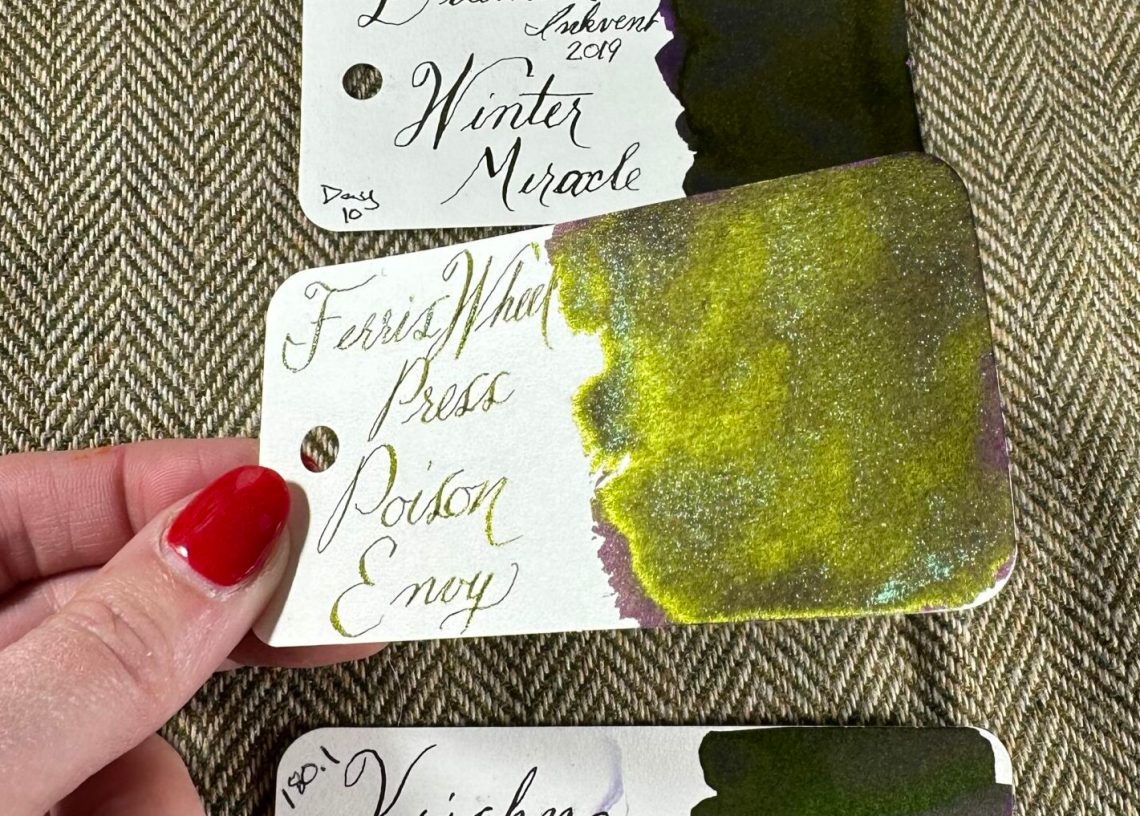 Inkvent
2019
Winter
Miracle
Day
10
Ferris Wheel
Press
Poison
Envy
180.1
Krishna